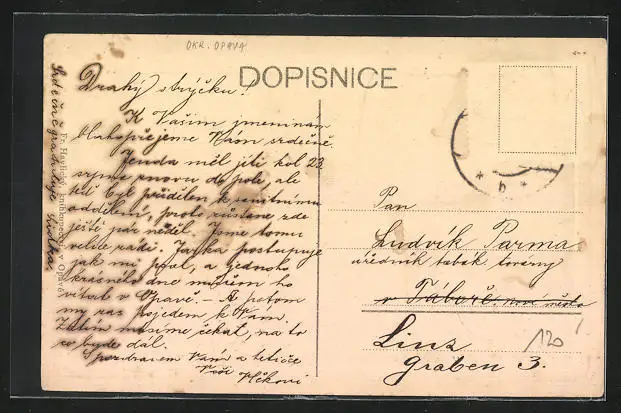 OKR. OPAVA
DOPISNICE
Drahý strýčku!
K Vašim jmeninám
blahopřejeme Vám srdečně
Jenda měl jíti kol 23.
srpna znovu do pole, ale
teď byl přidělen k sanitnímu
oddělení, proto zůstane zde
ještě pár neděl. Jsme tomu
velice rádi. Jarka postupuje
jak mi psal, a jednoho
krásného dne musíme ho
vítat v Opavě. – A potom
my vás pojedem k Vám.
Zatím musíme čekat, na to
co bude dál.
Spozdravem Vám a tetičce
Vaši Vlkovi
Srdečně gratuluje
Fr. Havlíček, knihkupectví v Opavě
b
Pan
Ludvík Parma
úředník tabák. továrny
v Táboře.
Linz
Graben 3.
120